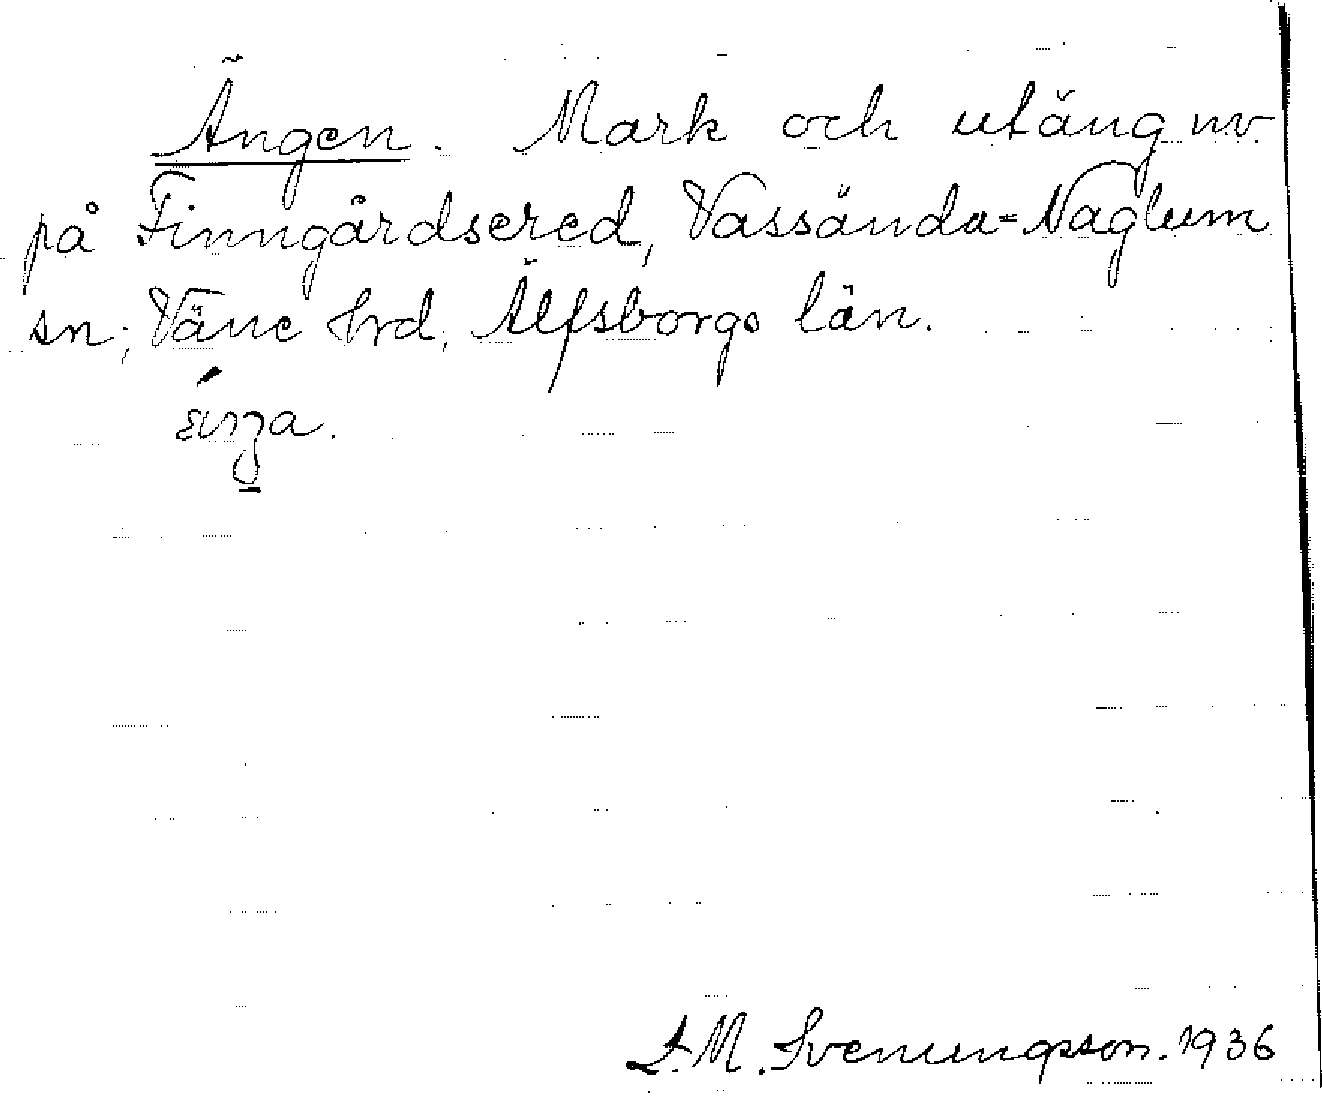 Ängen. Mark och utäng nv
på Finngårdsered, Vassända=Naglum
sn; Väne hrd, Älfsborgs län.
L. M. Svenungsson. 1936